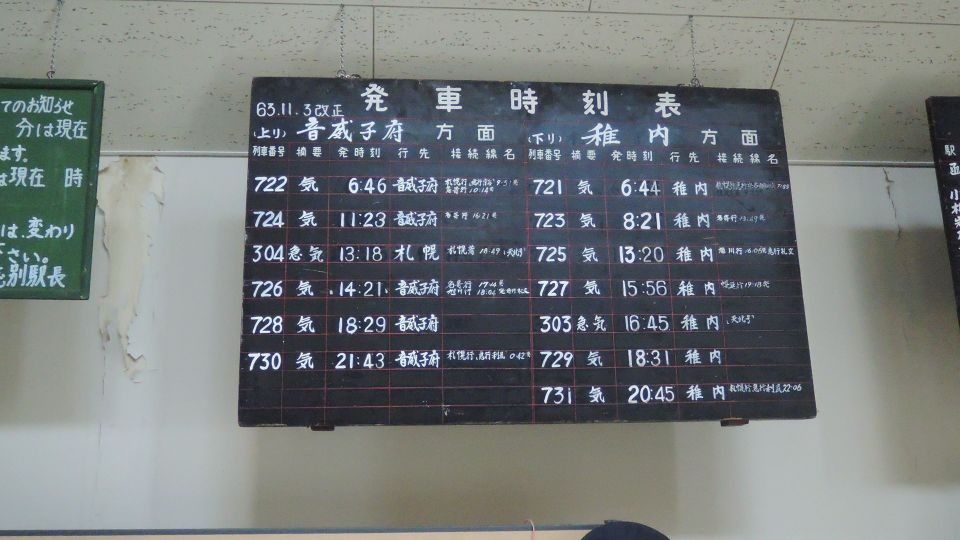 てのお知らせ
分は現在
ます。
は現在 時
は、変わり
さい。
別駅長
発車時刻表
63.11.3改正
(上り) 音威子府 方面
列車番号 摘要 発時刻 行先 接続線名
722 気 6:46 音威子府
724 気 11:23 音威子府 名寄行 16:21発
304 急気 13:18 札幌 札幌着 18:49
726 気 14:21 音威子府 名寄行
728 気 18:29 音威子府
730 気 21:43 音威子府 札幌行、急行利尻 0:42発
(下り) 稚内 方面
列車番号 摘要 発時刻 行先 接続線名
721 気 6:44 稚内
723 気 8:21 稚内
725 気 13:20 稚内 旭川行 急行礼文
727 気 15:56 稚内 幌延行 19:18発
303 急気 16:45 稚内 天北号
729 気 18:31 稚内
731 気 20:45 稚内 札幌行急行利尻 22:06
駅